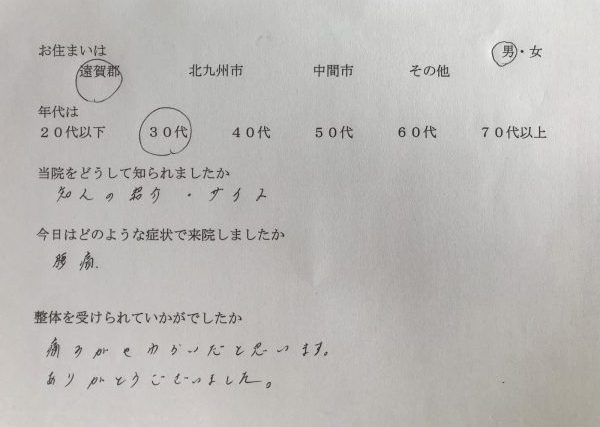 お住まいは 男・女
遠賀郡 北九州市 中間市 その他
年代は
２０代以下 ３０代 ４０代 ５０代 ６０代 ７０代以上
当院をどうして知られましたか
知人の紹介・サイト
今日はどのような症状で来院しましたか
腰痛.
整体を受けられていかがでしたか
痛みがやわらいだと思います。
ありがとうございました。